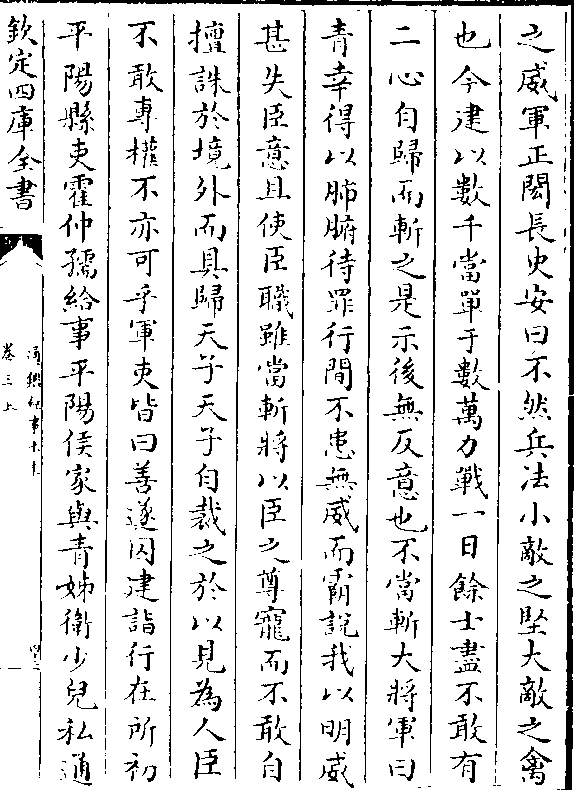 之威軍正閎長史安曰不然兵法小敵之堅大敵之禽
也今建以數千當單于數萬力戰一日餘士盡不敢有
二心自歸而斬之是示後無反意也不當斬大將軍曰
青幸得以肺腑待罪行間不患無威而霸說我以明威
甚失臣意且使臣職雖當斬將以臣之尊寵而不敢自
擅誅於境外而具歸天子天子自裁之於以見為人臣
不敢專權不亦可乎軍吏皆曰善遂囚建詣行在所初
平陽縣吏霍仲孺給事平陽侯家與青姊衛少兒私通
欽定四庫全書
通鑑紀事本末
卷三上